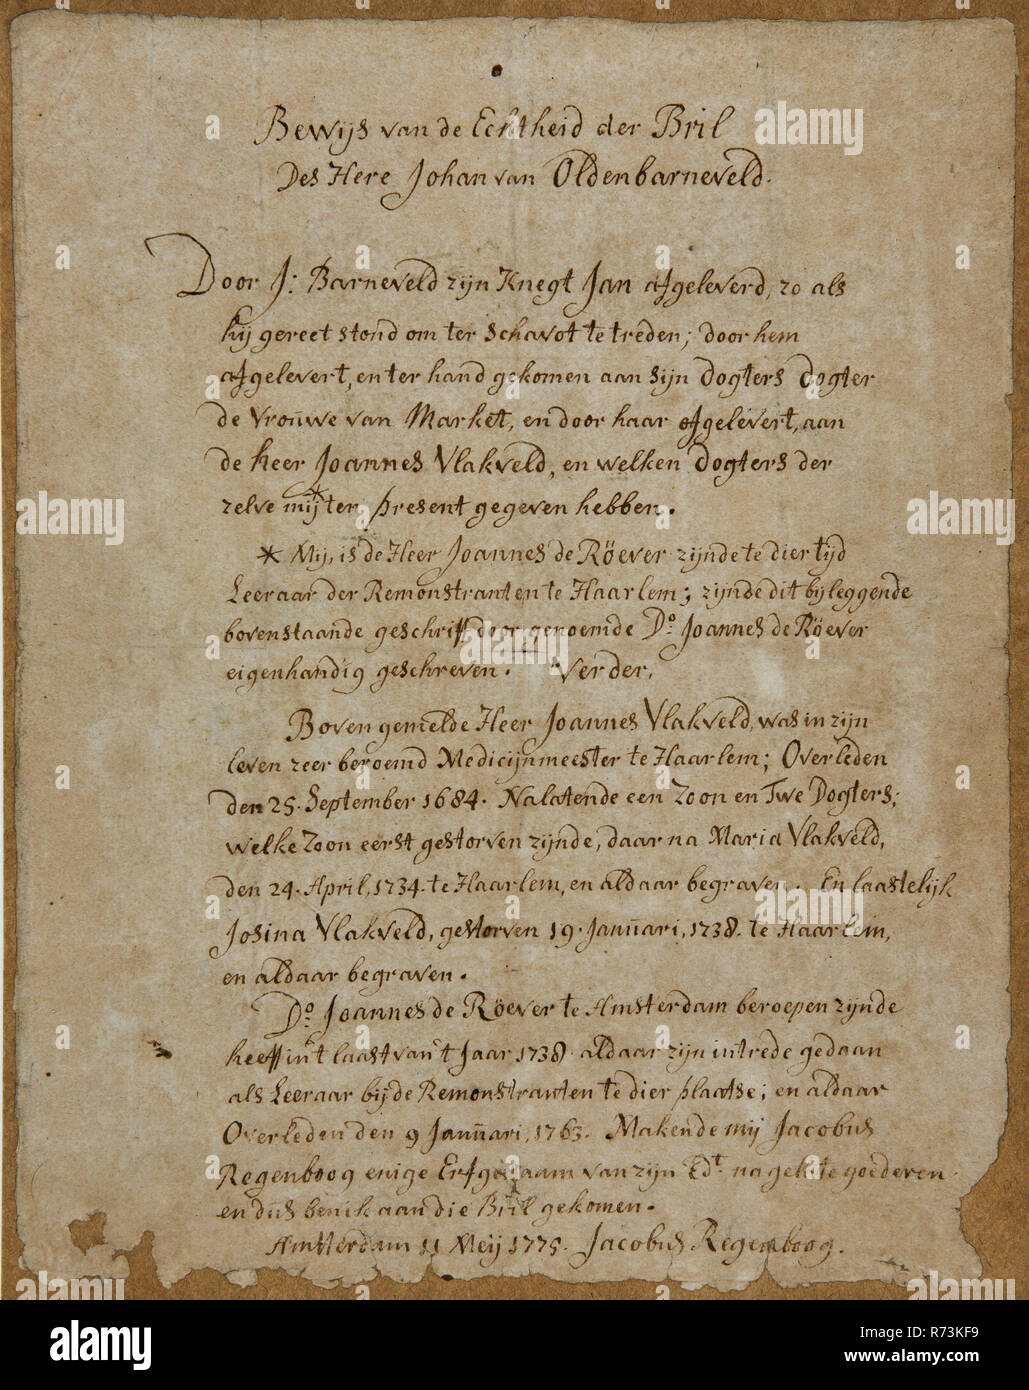 Bewijs van de Echtheid der Bril
Des Here Johan van Oldenbarneveld.
Door J: Barneveld zijn Knegt Jan afgeleverd, zo als
hij gereet stond om ter schavot te treden; door hem
afgelevert, en ter hand gekomen aan sijn dogters dogter
de Vroüwe van Market, en door haar afgelevert, aan
de heer Joannes Vlakveld, en welken dogters der
zelve mij * ter present gegeven hebben.
* Mij, is de Heer Joannes de Röever zijnde te dier tijd
Leeraar der Remonstranten te Haarlem; zijnde dit bijleggende
bovenstaande geschrift door genoemde Do. Joannes de Röever
eigenhandig geschreven. Verder,
Boven gemelde Heer Joannes Vlakveld, was in zijn
leven zeer beroemd Medicijnmeester te Haarlem; Overleden
den 25. September 1684. Nalatende een Zoon en Twe Dogters;
welke Zoon eerst gestorven zijnde, daar na Maria Vlakveld,
den 24. April, 1734. te Haarlem, en aldaar begraven. En laastelijk
Josina Vlakveld, gestorven 19. Janüari, 1738. te Haarlem,
en aldaar begraven.
Do. Joannes de Röever te Amsterdam beroepen zijnde
heeft in't laast van't Jaar 1738. aldaar zijn intrede gedaan
als Leeraar bij de Remonstranten te dier plaatse; en aldaar
Overleden den 9 Janüari, 1763. Makende mij Jacobus
Regenboog enige Erfgenaam van zijn Edt. nagelate goederen
en düs ben ik aan die Bril gekomen.
Amsterdam 11 Meij 1775. Jacobus Regenboog.
alamy
Image ID: R73KF9
www.alamy.com